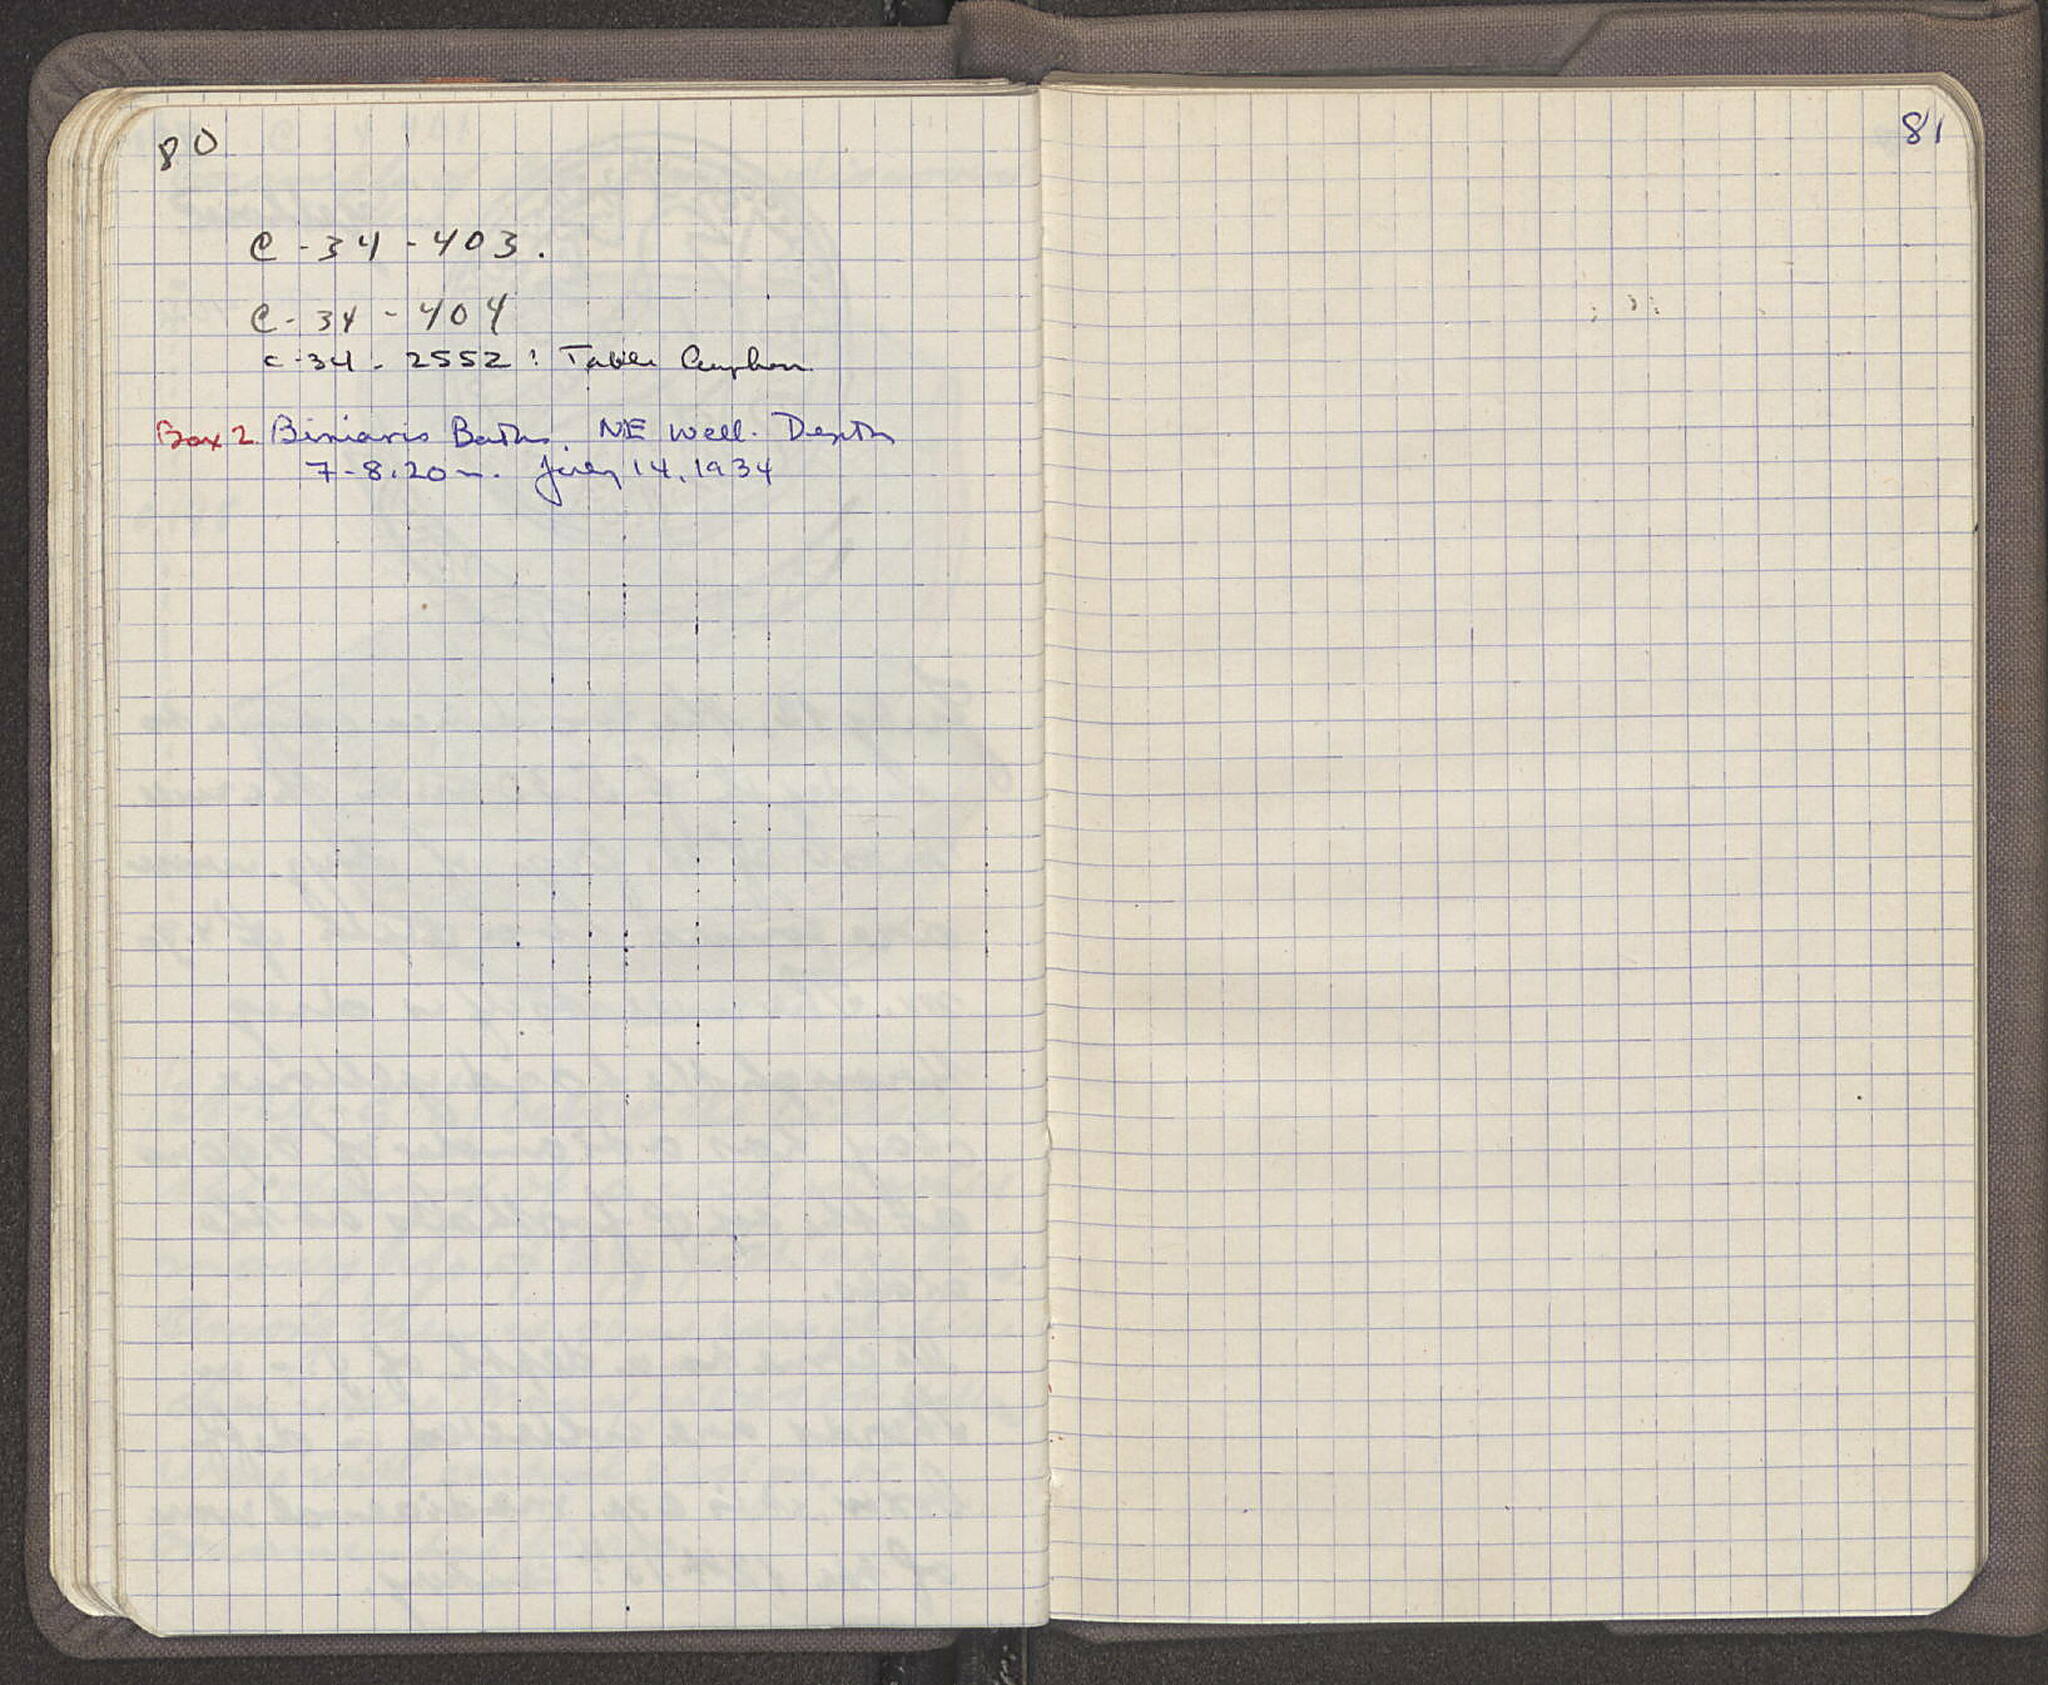 80
C-34-403.
C-34-404
C-34-2552: Table Amphora
Box 2 Biniaris Baths. NE Well. Depth
7-8.20m. July 14, 1934
81